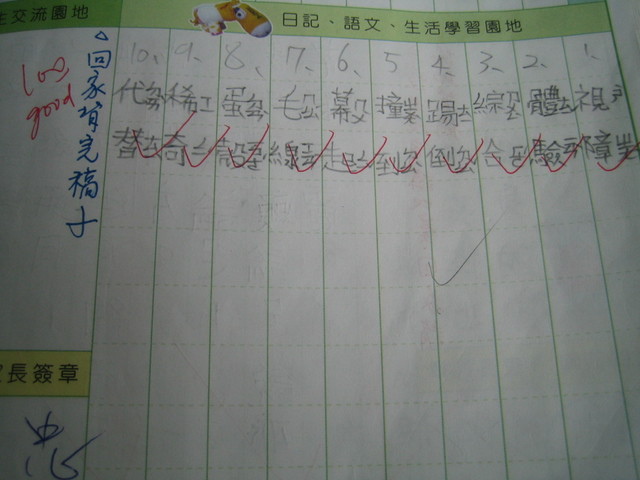 生交流園地
日記、語文、生活學習園地
1、視障
2、體驗
3、綜合
4、踢倒
5、撞倒
6、幕起
7、毛線
8、蛋殼
9、稀奇
10、代替
回家背完稿子
100
good
長簽章